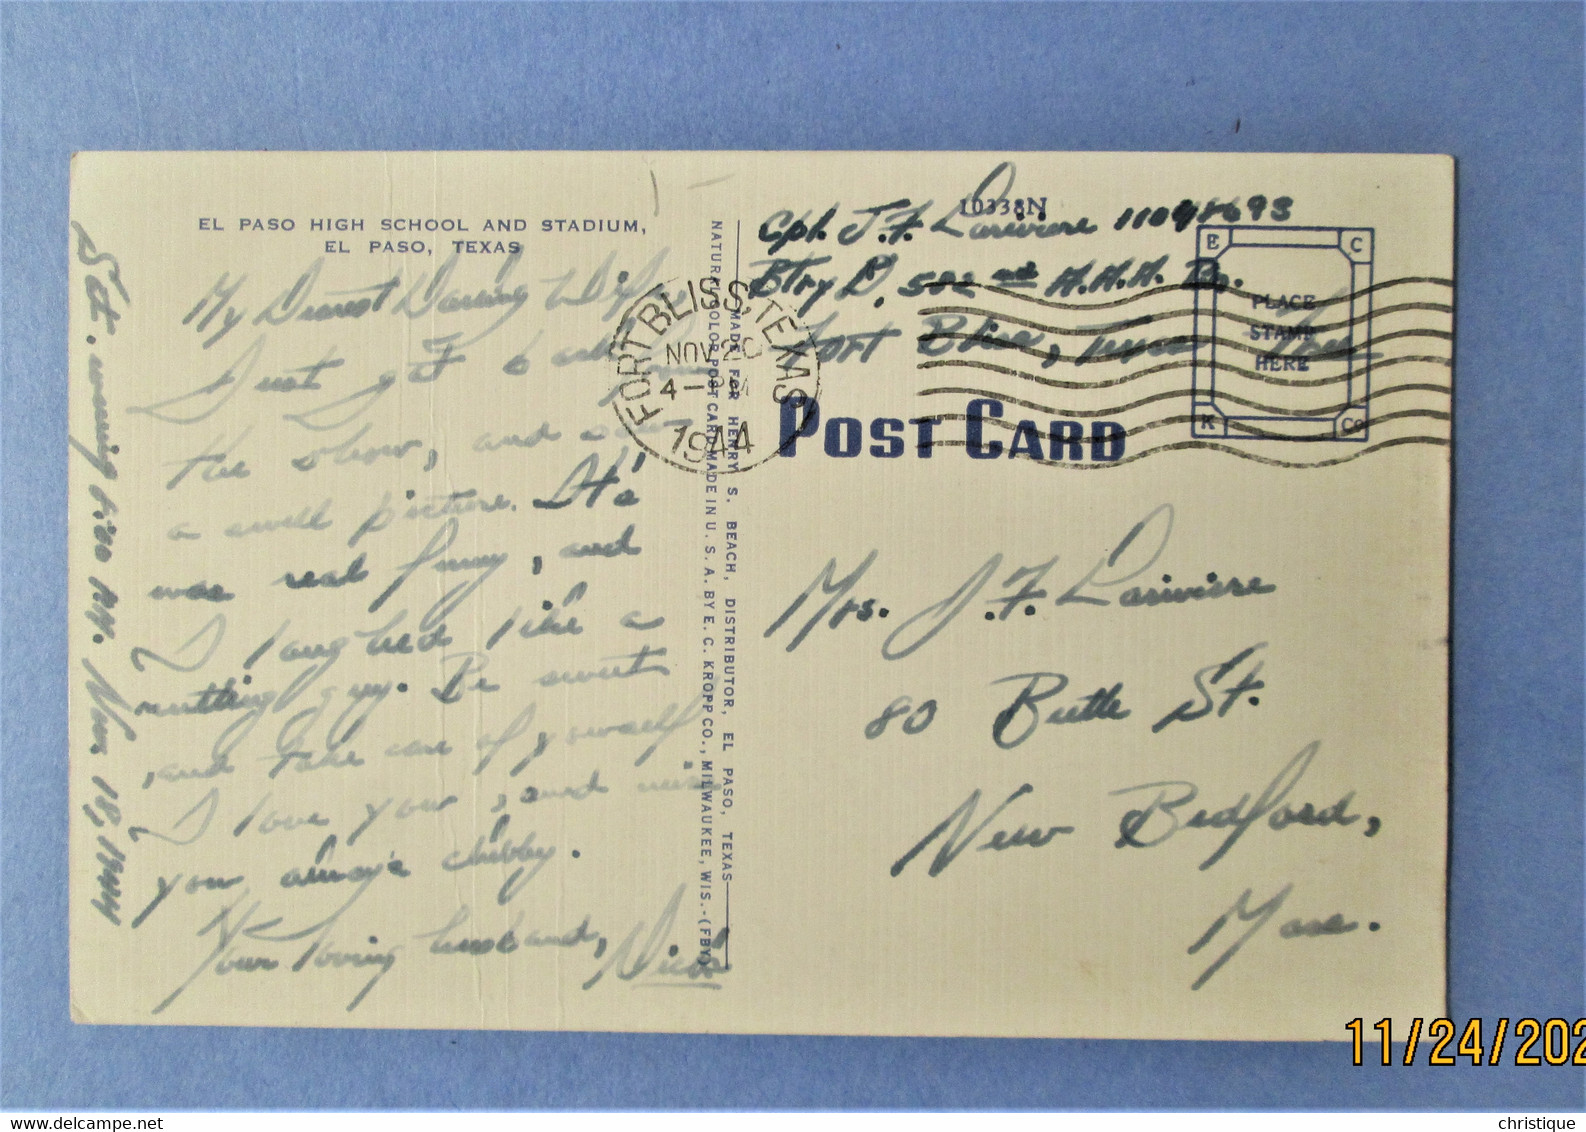 EL PASO HIGH SCHOOL AND STADIUM,
EL PASO, TEXAS
Sat. evening 1:00 AM. Nov 18, 1944
My Dearest Darling Wife,
Just got back from
the show, and saw
a swell picture. It's
was real funny, and
I laughed like a
nutting guy. Be sweet
and take care of yourself
I love you, and miss
you always chibby.
Your loving husband,
NATURAL COLOR POST CARD MADE IN U. S. A. BY E. C. KROPP CO., MILWAUKEE, WIS.-(FBY)
MADE FOR HENRY S. BEACH, DISTRIBUTOR, EL PASO, TEXAS
FORT BLISS, TEXAS
NOV 20
4-
1944
10338N
Cpl. J. F. Lariviere 11048693
Btry D, 582nd A.A.A. Bn.
Fort Bliss, Texas
E C
PLACE
STAMP
HERE
K CO
POST CARD
Mrs. J. F. Lariviere
80 Butle St.
New Bedford,
Mass.
11/24/202
© christique